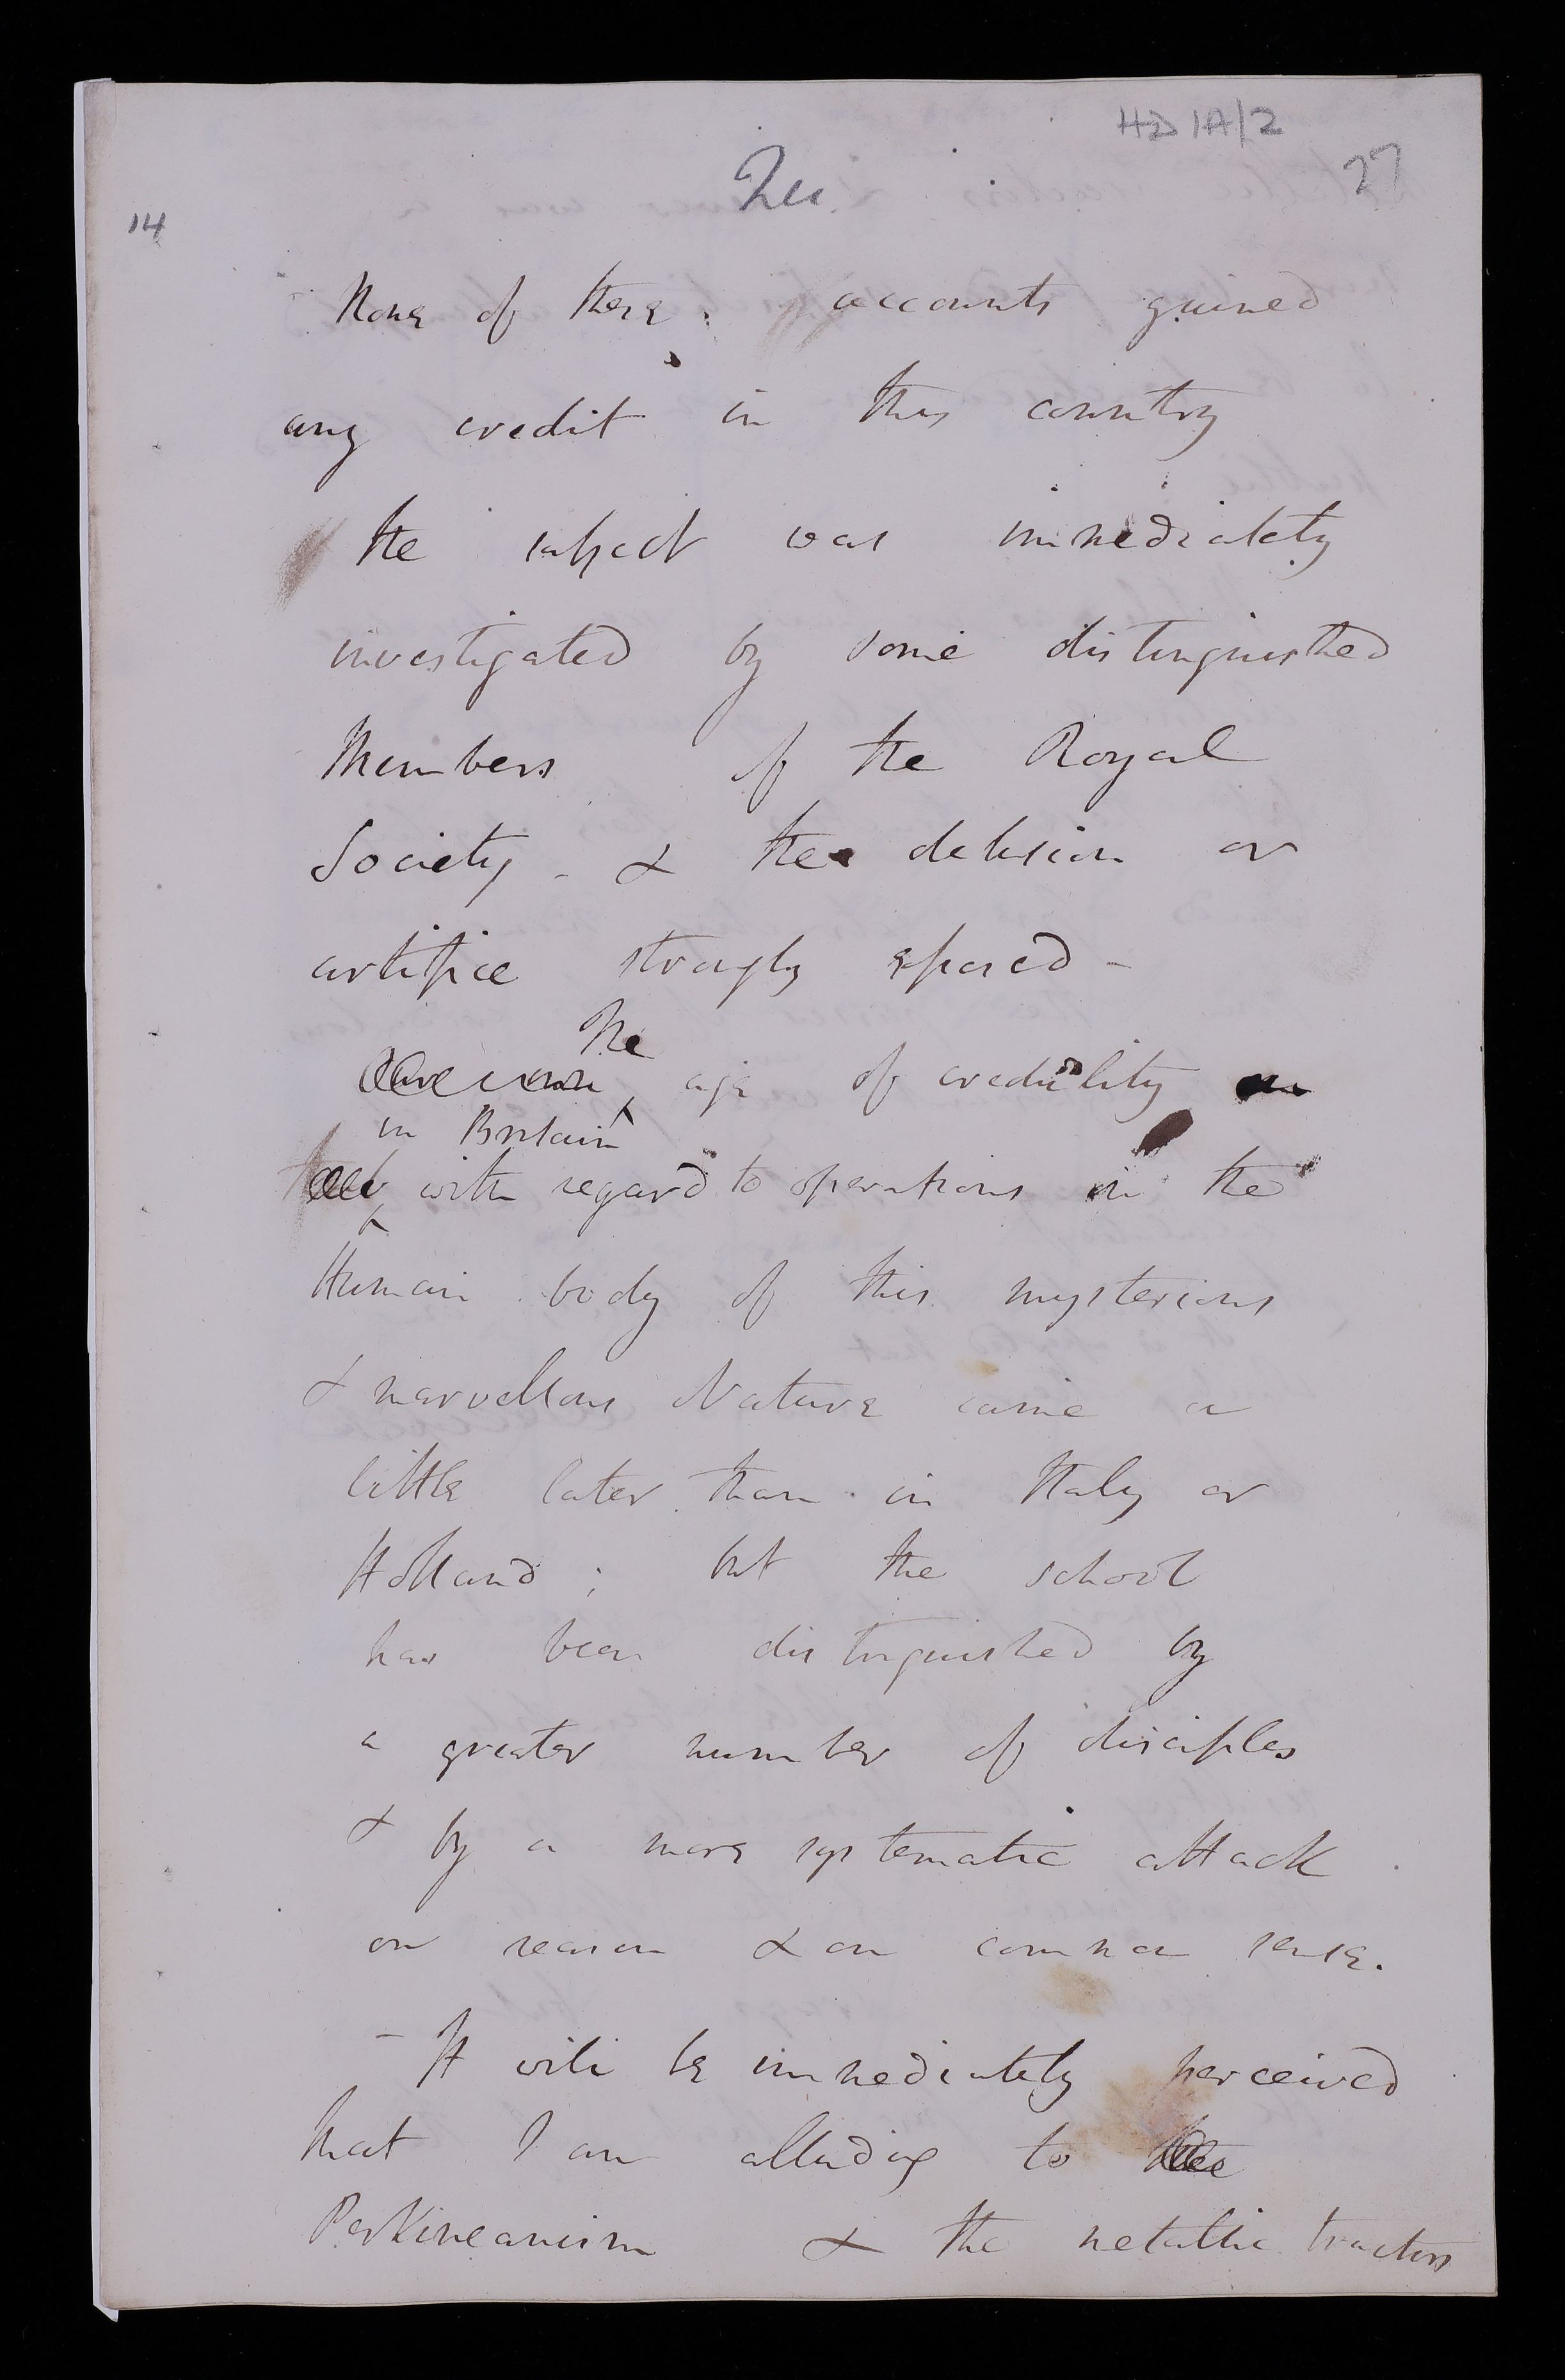 HD 1A/2
27
14
None of these accounts gained
any credit in this country
the subject was immediately
investigated by some distinguished
Members of the Royal
Society - & the delusion or
artifice strongly exposed -
The
age of credulity
in Britain
with regard to operations in the
Human body of this mysterious
& marvellous Nature came a
little later than in Italy or
Holland ; but the school
has been distinguished by
a greater number of disciples
& by a more systematic attack
on reason & on common sense.
- It will be immediately perceived
that I am alluding to
Perkineanism & the metallic tractors